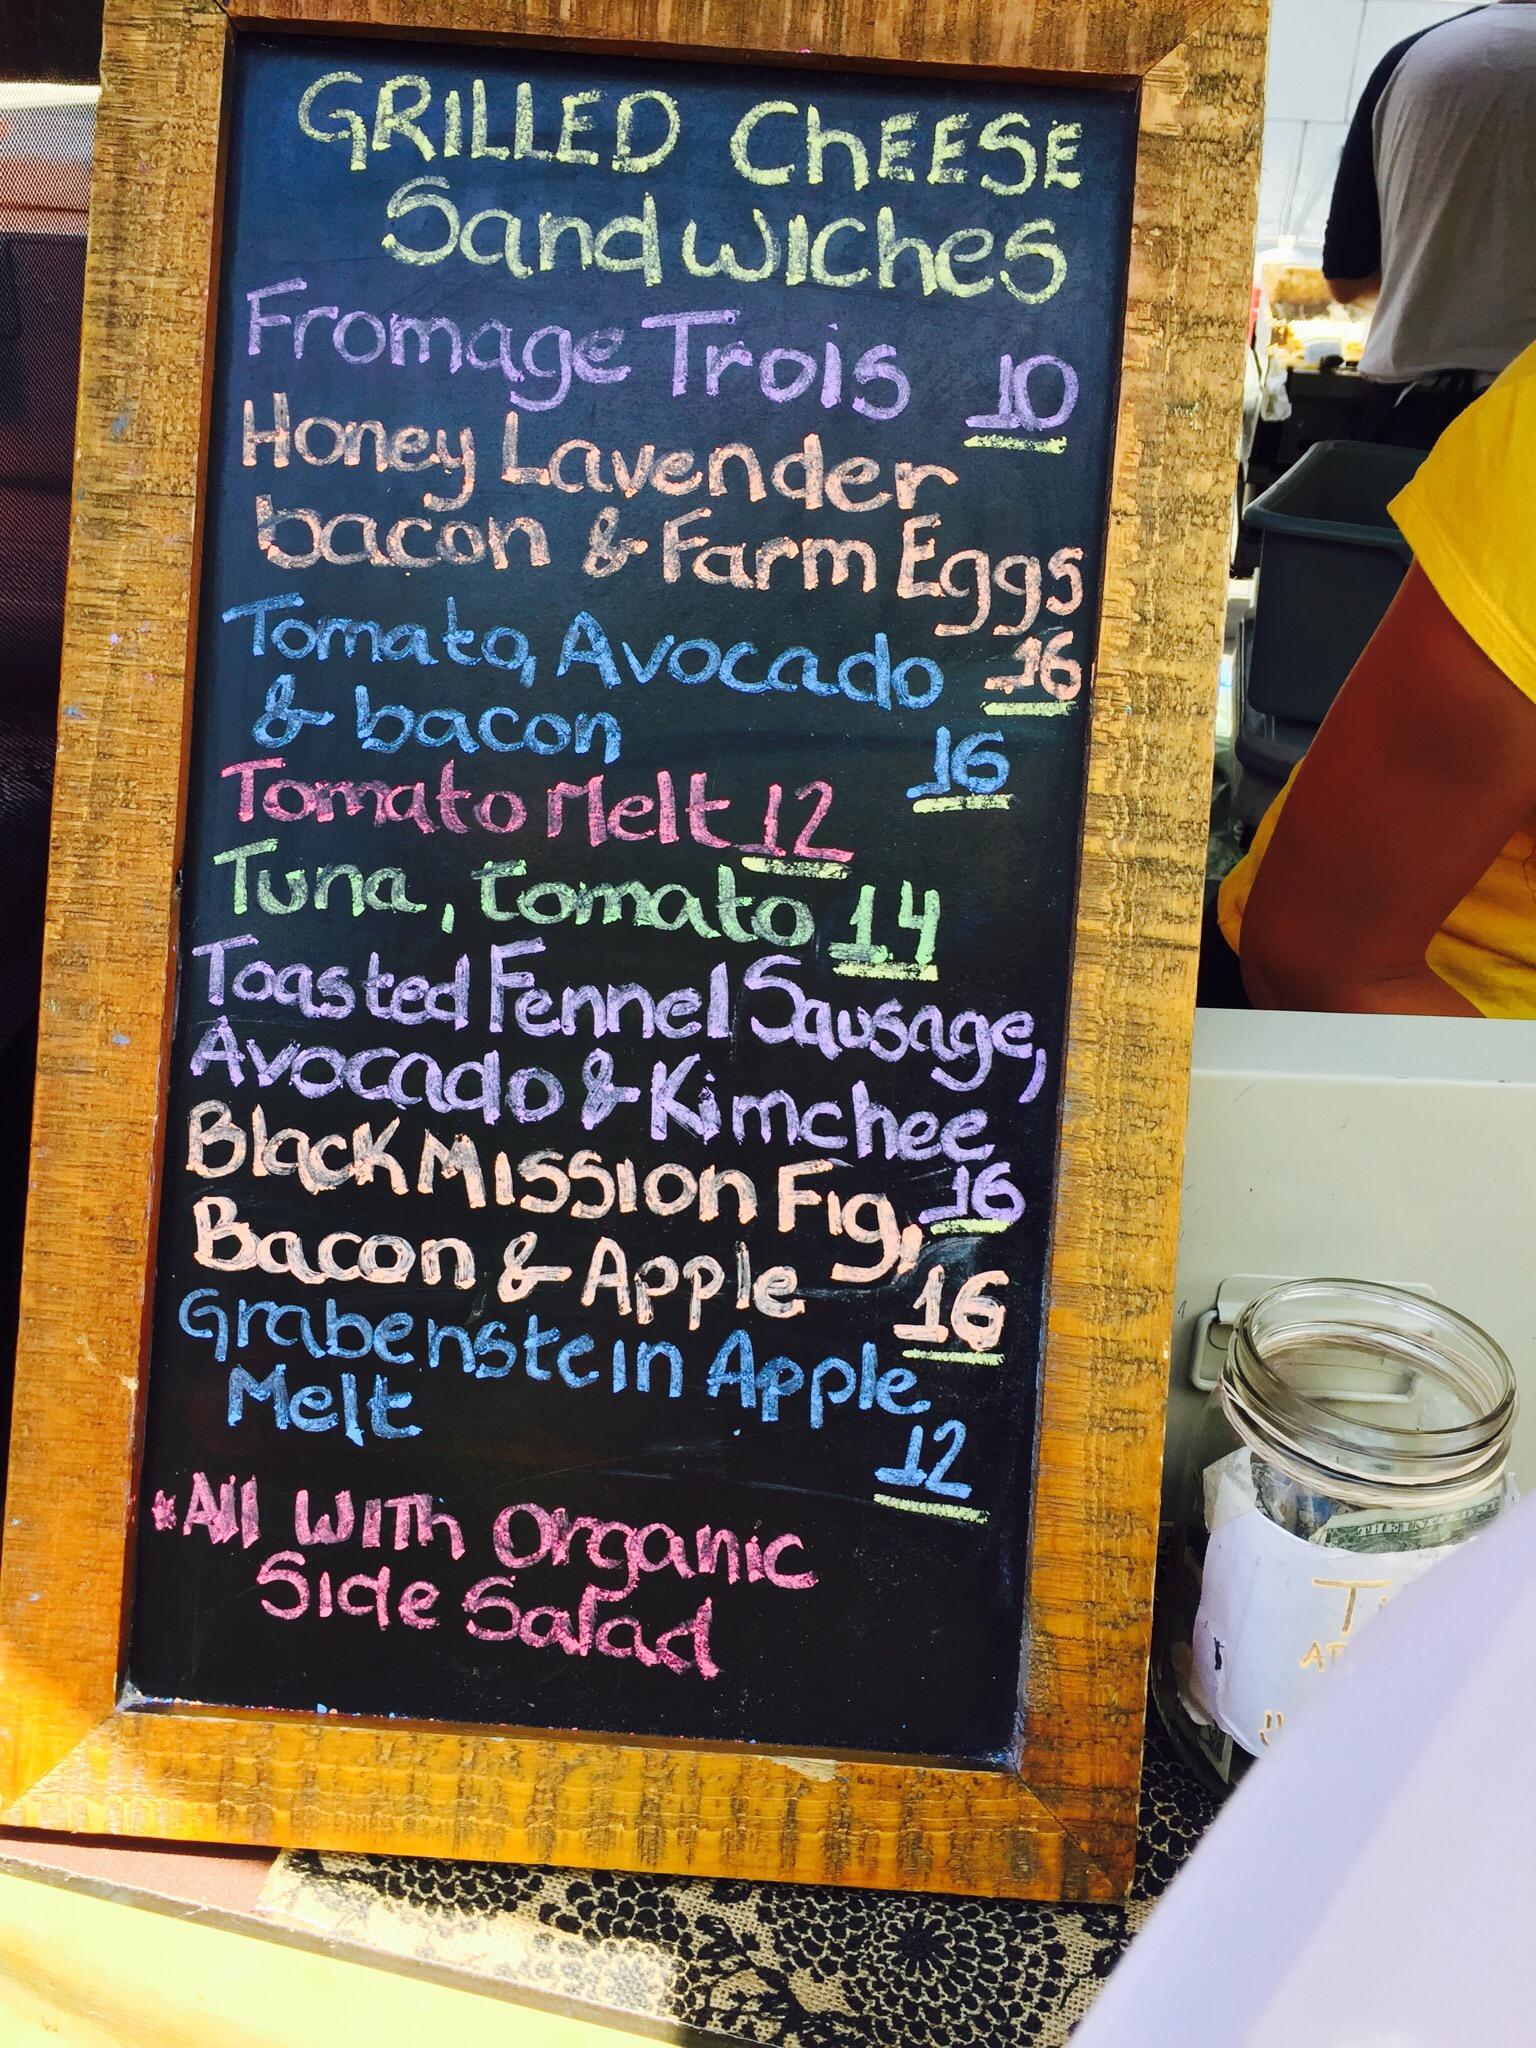 GRILLED ChEESE
Sandwiches
Fromage Trois 10
Honey Lavender
bacon & Farm Eggs
16
Tomato, Avocado
& bacon 16
Tomato Melt 12
Tuna, tomato 14
Toasted Fennel Sausage,
Avocado & Kimchee
16
Black Mission Fig,
Bacon & Apple 16
Grabenstein Apple
Melt 12
*All With Organic
Side Salad